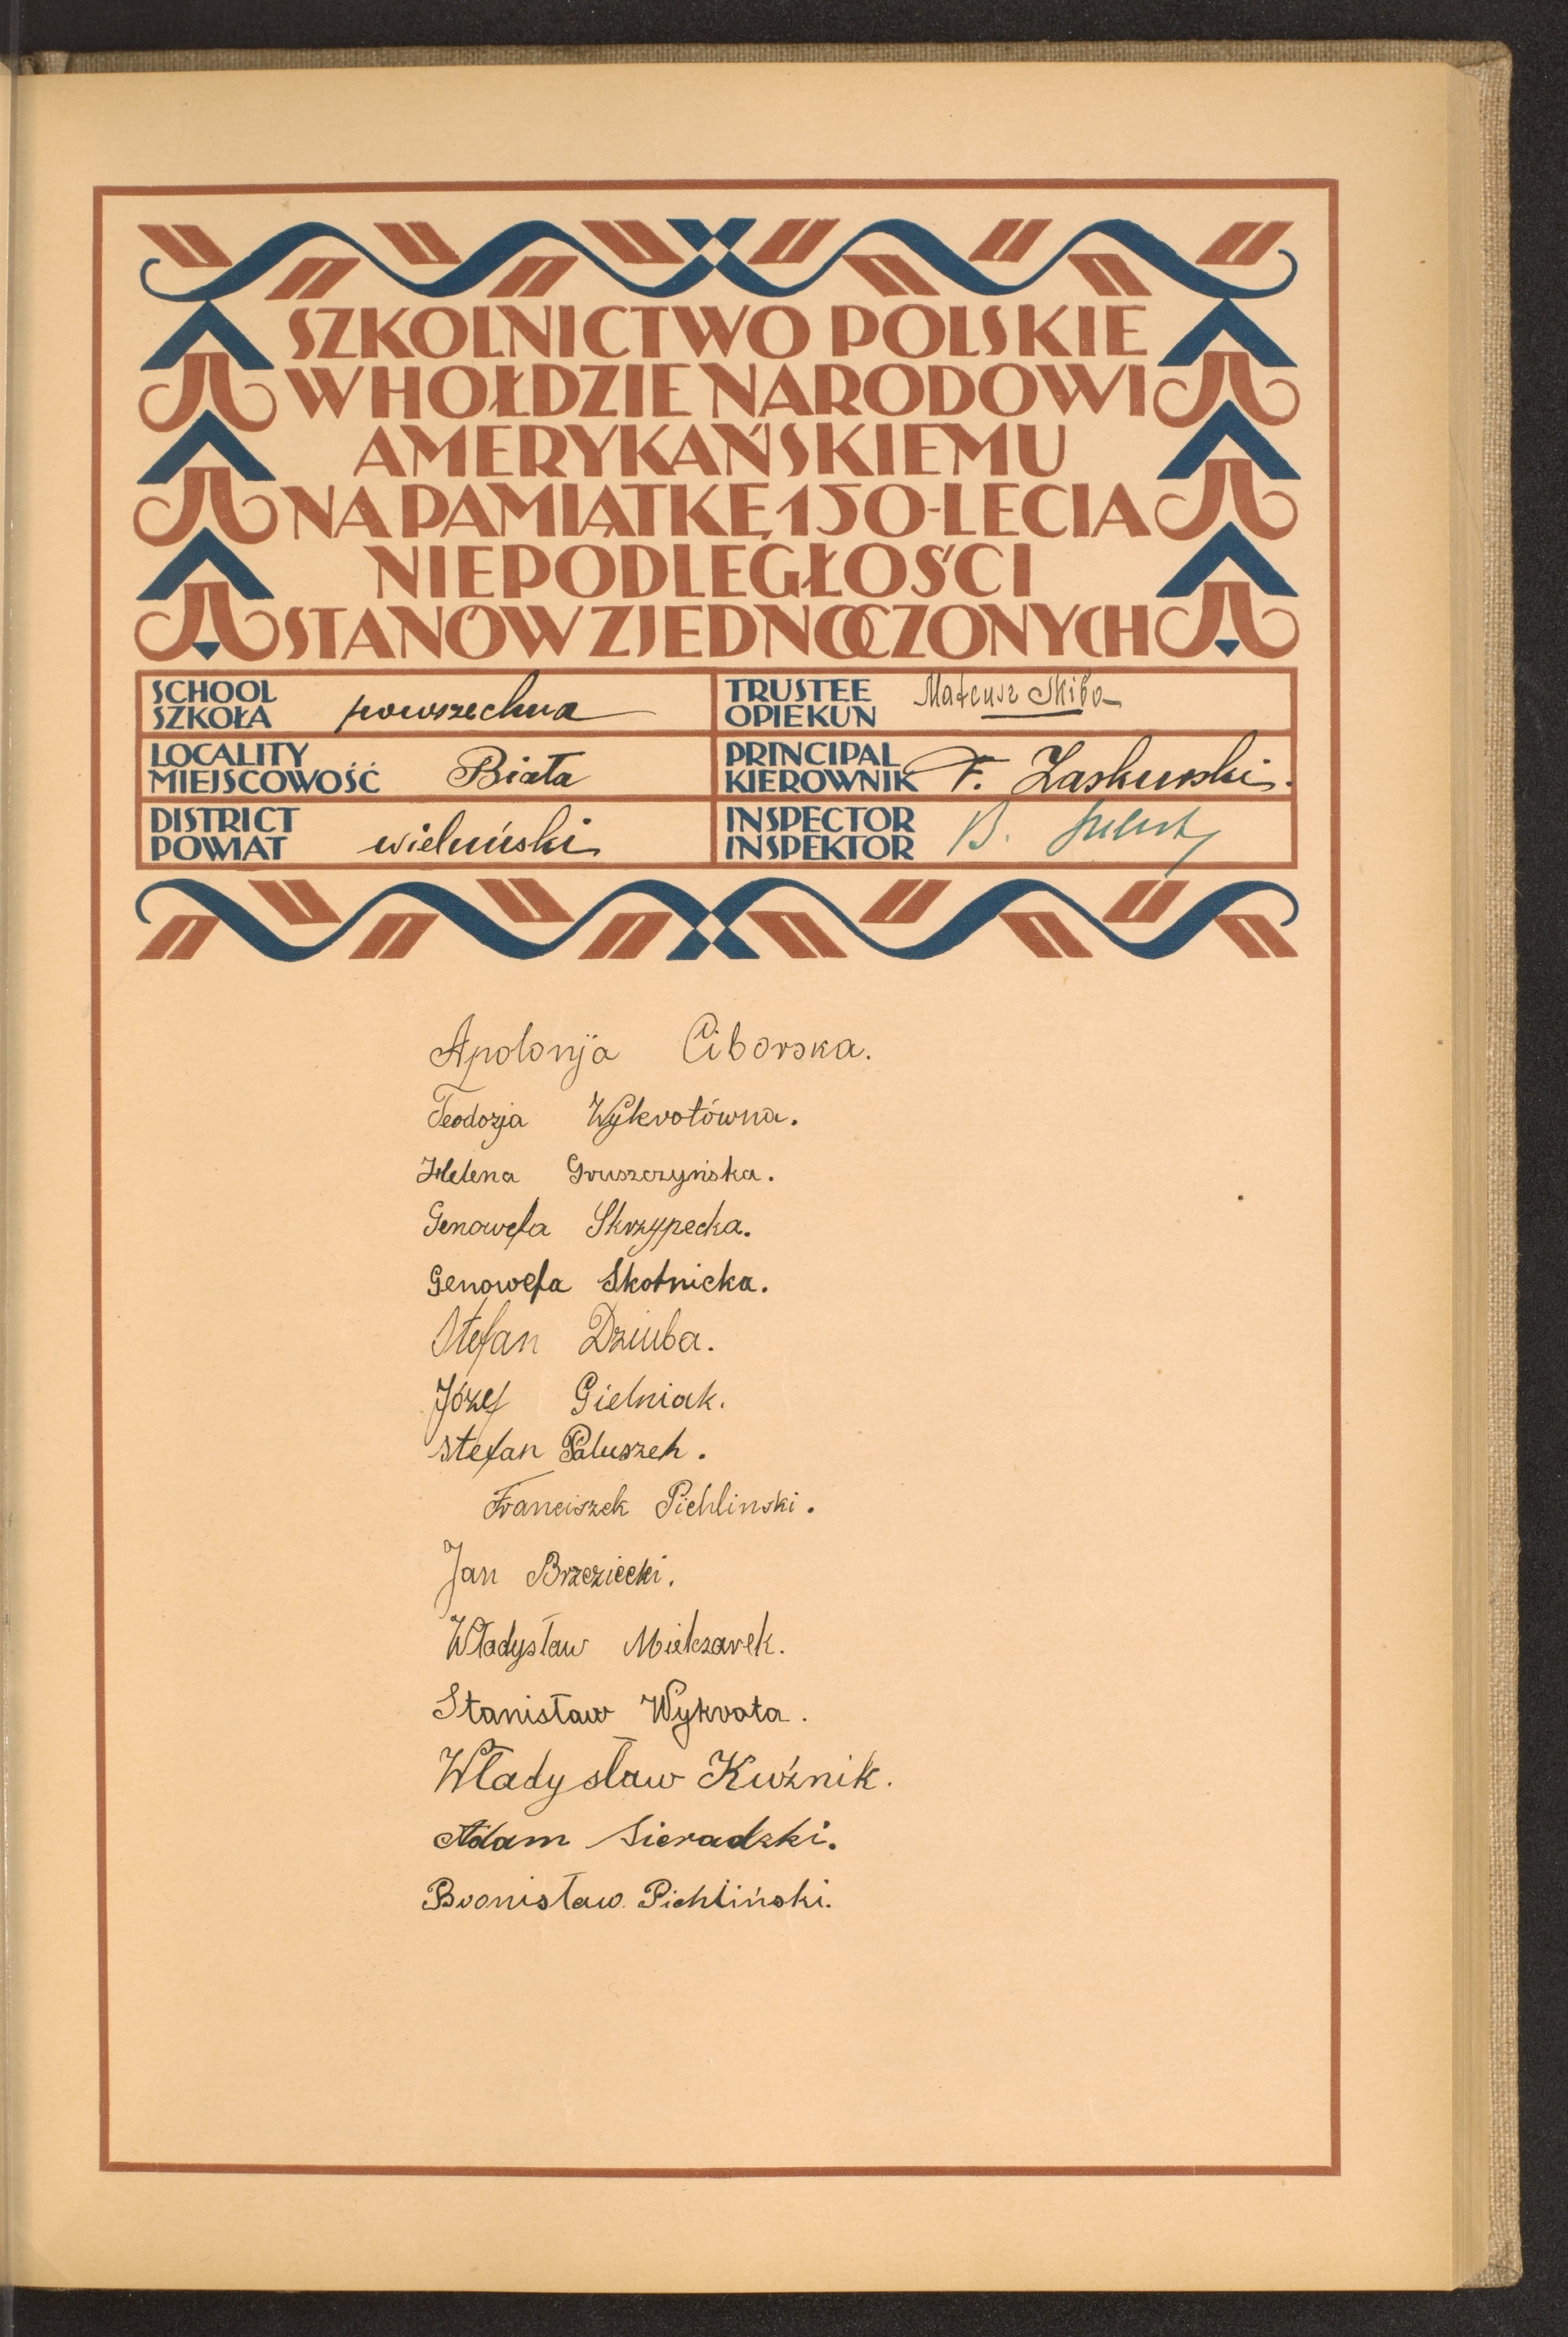 SZKOLNICTWO POLSKIE
W HOŁDZIE NARODOWI
AMERYKAŃSKIEMU
NA PAMIĄTKĘ 150-LECIA
NIEPODLEGŁOŚCI
STANÓW ZJEDNOCZONYCH
SCHOOL
SZKOŁA powszechna
TRUSTEE
OPIEKUN Mateusz Skiba
LOCALITY
MIEJSCOWOŚĆ Biała
PRINCIPAL
KIEROWNIK F. Laskowski.
DISTRICT
POWIAT wieluński
INSPECTOR
INSPEKTOR B.
Apolonja Ciborska.
Teodozja Wykrotówna.
Helena Gruszczyńska.
Genowefa Skrzypecka.
Genowefa Skotnicka.
Stefan Dziuba.
Józef Gielniak.
Stefan Paluszek.
Franciszek Pichlinski.
Jan Brzeziecki.
Władysław Mielczarek.
Stanisław Wykrota.
Władysław Kuźnik.
Adam Sieradzki.
Bronisław Pichliński.